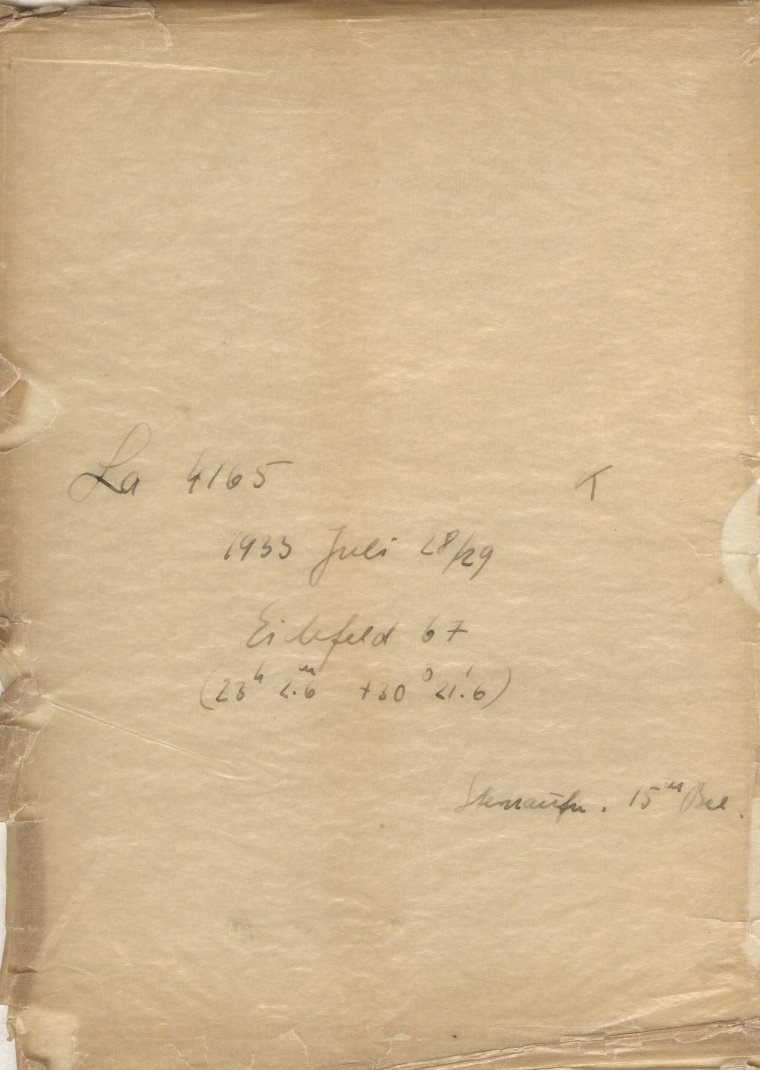 La 4165 T
1933 Juli 28/29
Eichfeld 67
(23ʰ 2.ᵐ6 +30° 21.'6)
Sternaufn. 15ᵐ Bel.